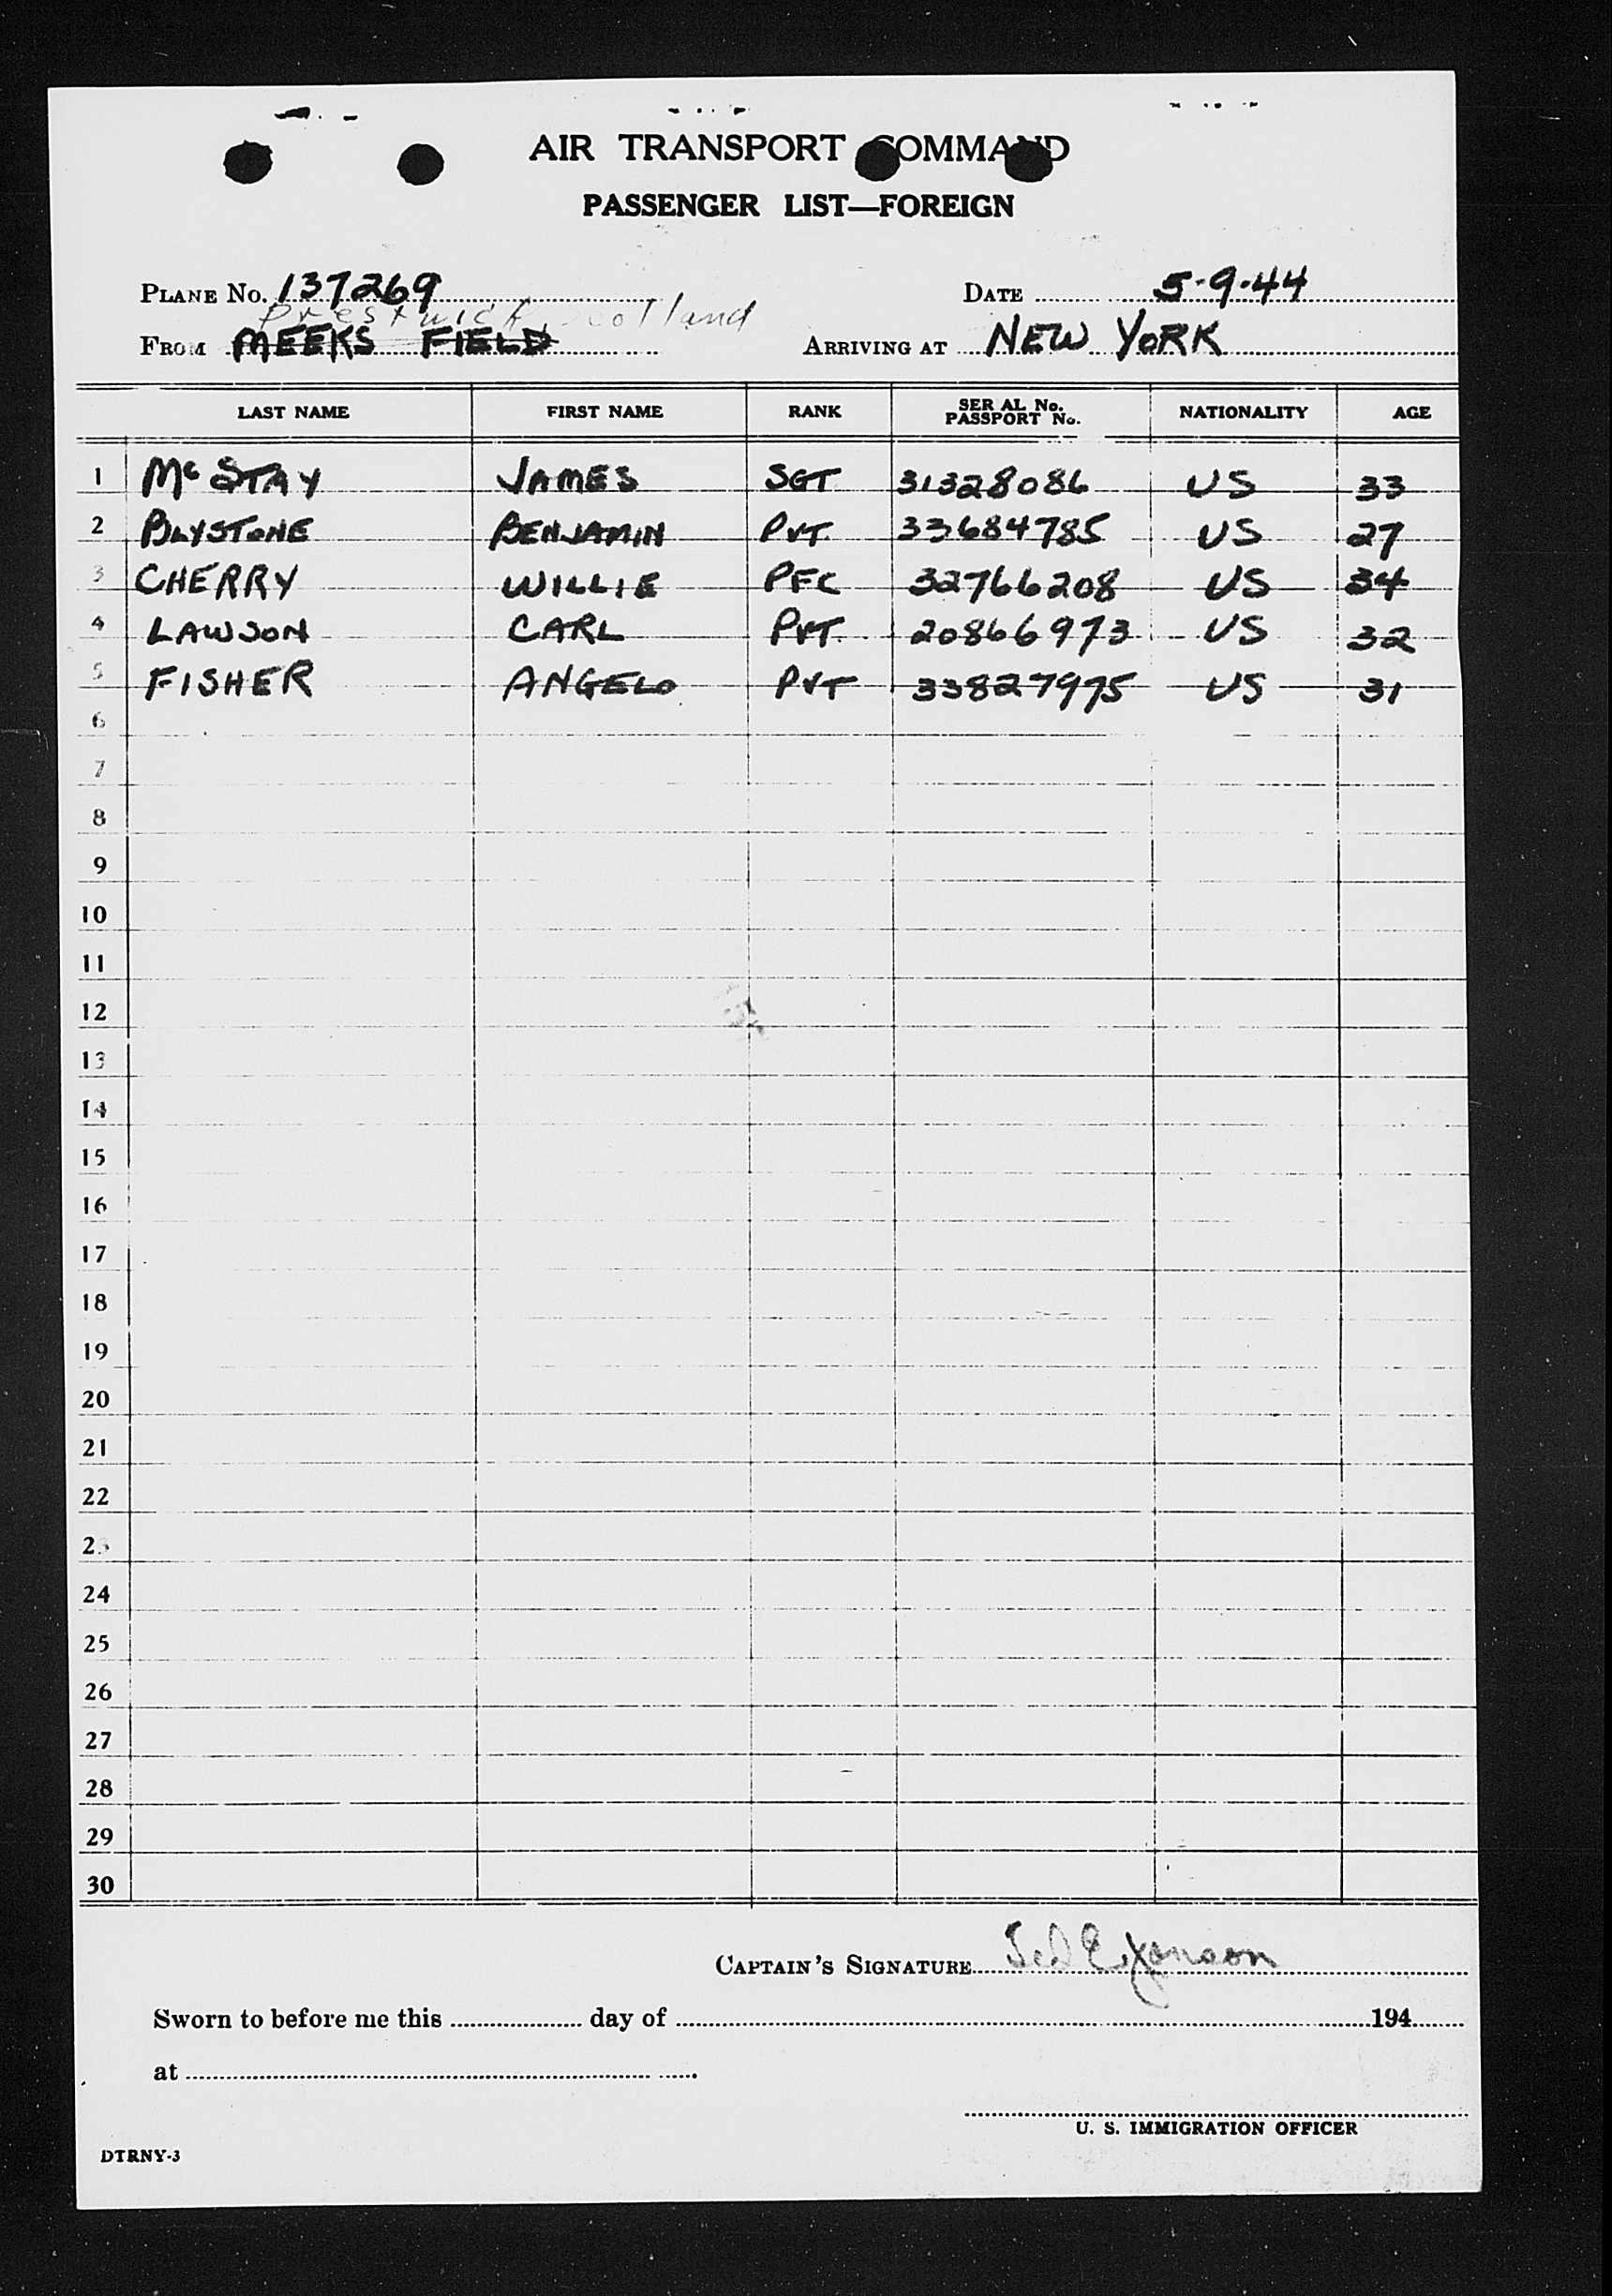 AIR TRANSPORT COMMAND
PASSENGER LIST—FOREIGN
PLANE No. 137269 DATE 5-9-44
Prestwick, Scotland
FROM MEEKS FIELD ARRIVING AT NEW YORK
LAST NAME FIRST NAME RANK SERIAL No. PASSPORT No. NATIONALITY AGE
1 McSTAY JAMES SGT 31328086 US 33
2 BLYSTONE BENJAMIN PVT. 33684785 US 27
3 CHERRY WILLIE PFC 32766208 US 34
4 LAWSON CARL PVT. 20866973 US 32
5 FISHER ANGELO PVT 33827975 US 31
6
7
8
9
10
11
12
13
14
15
16
17
18
19
20
21
22
23
24
25
26
27
28
29
30
CAPTAIN'S SIGNATURE
Sworn to before me this day of 194
at
U. S. IMMIGRATION OFFICER
DTRNY-3